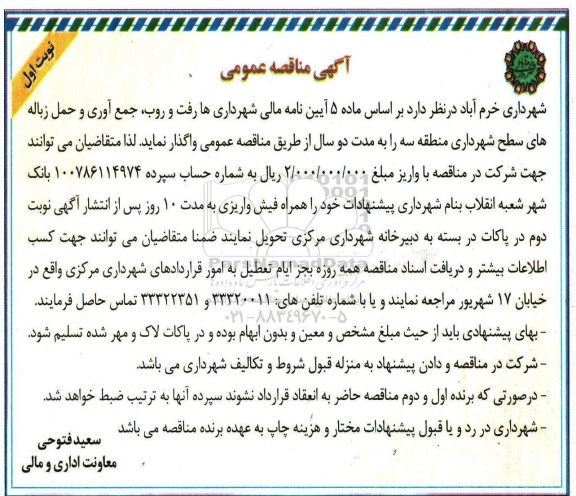 نوبت اول
آگهی مناقصه عمومی
شهرداری خرم آباد درنظر دارد بر اساس ماده ۵ آیین نامه مالی شهرداری ها رفت و روب، جمع آوری و حمل زباله
های سطح شهرداری منطقه سه را به مدت دو سال از طریق مناقصه عمومی واگذار نماید. لذا متقاضیان می توانند
جهت شرکت در مناقصه با واریز مبلغ ۲/۰۰۰/۰۰۰/۰۰۰ ریال به شماره حساب سپرده ۱۰۰۷۸۶۱۱۴۹۷۴ بانک
شهر شعبه انقلاب بنام شهرداری پیشنهادات خود را همراه فیش واریزی به مدت ۱۰ روز پس از انتشار آگهی نوبت
دوم در پاکات در بسته به دبیرخانه شهرداری مرکزی تحویل نمایند ضمنا متقاضیان می توانند جهت کسب
اطلاعات بیشتر و دریافت اسناد مناقصه همه روزه بجز ایام تعطیل به امور قراردادهای شهرداری مرکزی واقع در
خیابان ۱۷ شهریور مراجعه نمایند و یا با شماره تلفن های: ۳۳۳۲۰۰۱۱ و ۳۳۳۲۲۳۵۱ تماس حاصل فرمایند.
- بهای پیشنهادی باید از حیث مبلغ مشخص و معین و بدون ابهام بوده و در پاکات لاک و مهر شده تسلیم شود.
- شرکت در مناقصه و دادن پیشنهاد به منزله قبول شروط و تکالیف شهرداری می باشد.
- درصورتی که برنده اول و دوم مناقصه حاضر به انعقاد قرارداد نشوند سپرده آنها به ترتیب ضبط خواهد شد.
- شهرداری در رد و یا قبول پیشنهادات مختار و هزینه چاپ به عهده برنده مناقصه می باشد
سعیدفتوحی
معاونت اداری و مالی
ParsNamadData
۰۲۱-۸۸۳۴۹۶۷۰-۵